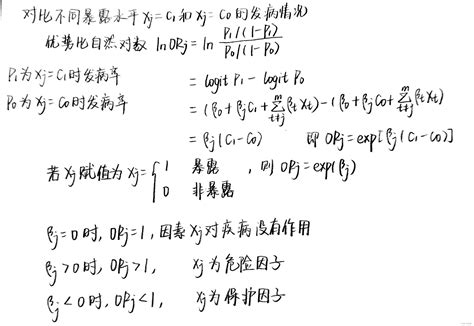 对比不同暴露水平Xj=C1和Xj=C0的发病情况
优势比自然对数 lnORj=ln P1/(1-P1) / P0/(1-P0)
P1为Xj=C1时发病率 = logit P1 - logit P0
P0为Xj=C0时发病率 = (β0+βjC1+∑βtXt)-(β0+βjC0+∑βtXt)
m t≠j m t≠j
= βj(C1-C0) 即 ORj=exp[βj(C1-C0)]
若Xj赋值为Xj={ 1 暴露 , 则ORj=exp(βj)
0 非暴露
βj=0时, ORj=1, 因素Xj对疾病没有作用
βj>0时, ORj>1, Xj为危险因子
βj<0时, ORj<1, Xj为保护因子